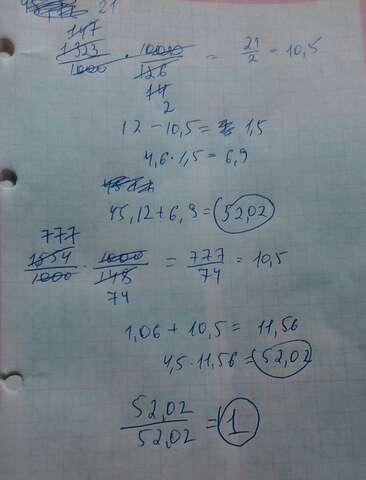 21
147
1323/1000 · 1000/126 = 21/2 - 10,5
14
2
12 - 10,5 = 1,5
4,6 · 1,5 = 6,9
45,12 + 6,9 = 52,02
777
1554/1000 · 1000/148 = 777/74 = 10,5
74
1,06 + 10,5 = 11,56
4,5 · 11,56 = 52,02
52,02/52,02 = 1